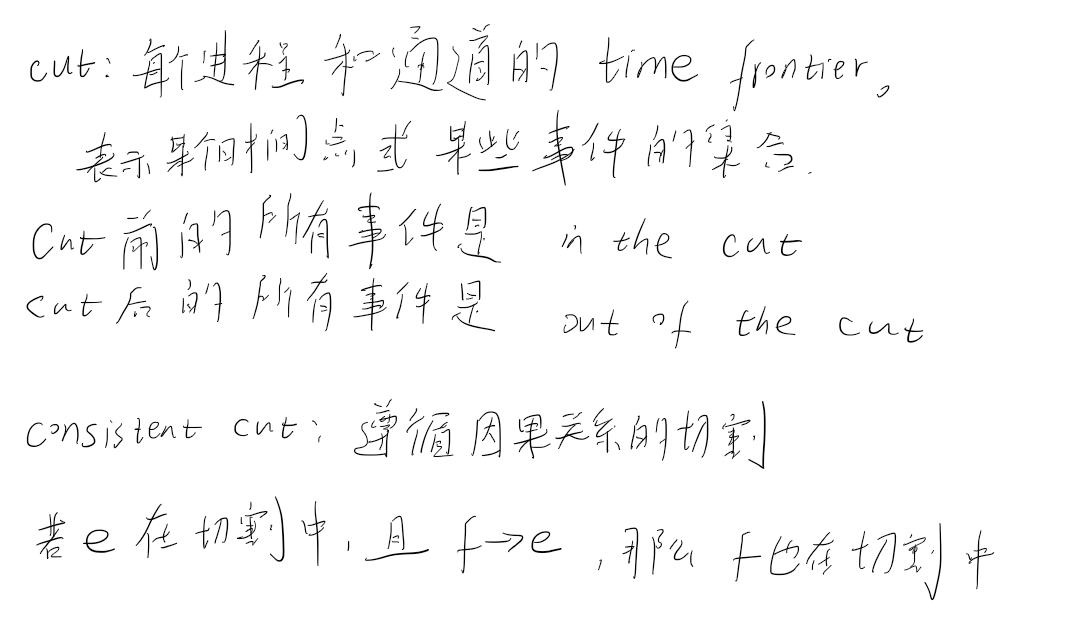 cut: 每个进程和通道的 time frontier。
表示某个时间点或某些事件的集合.
Cut 前的所有事件是 in the cut
cut 后的所有事件是 out of the cut
consistent cut: 遵循因果关系的切割
若 e 在切割中, 且 f→e, 那么 f 也在切割中